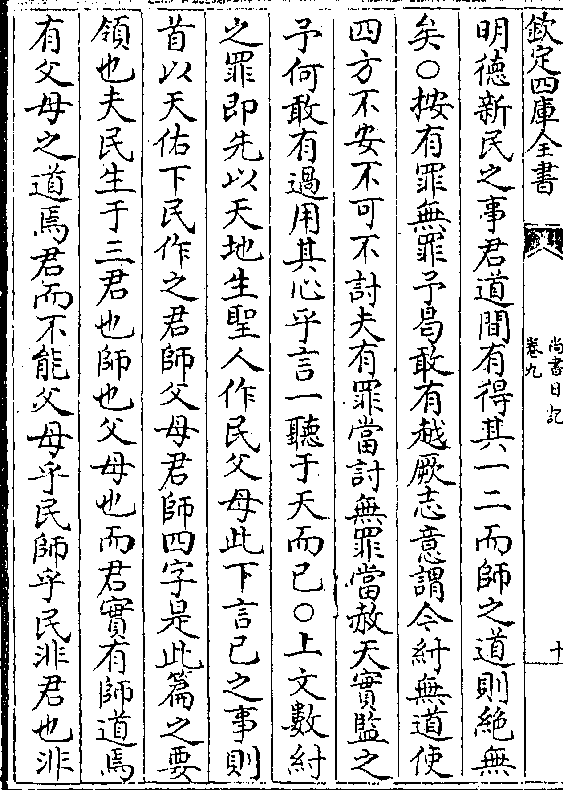 欽定四庫全書
尚書日記
卷九
十
明德新民之事君道間有得其一二而師之道則絶無
矣○按有罪無罪予曷敢有越厥志意謂今紂無道使
四方不安不可不討夫有罪當討無罪當赦天實監之
予何敢有過用其心乎言一聽于天而已○上文數紂
之罪即先以天地生聖人作民父母此下言已之事則
首以天佑下民作之君師父母君師四字是此篇之要
領也夫民生于三君也師也父母也而君實有師道焉
有父母之道焉君而不能父母乎民師乎民非君也非